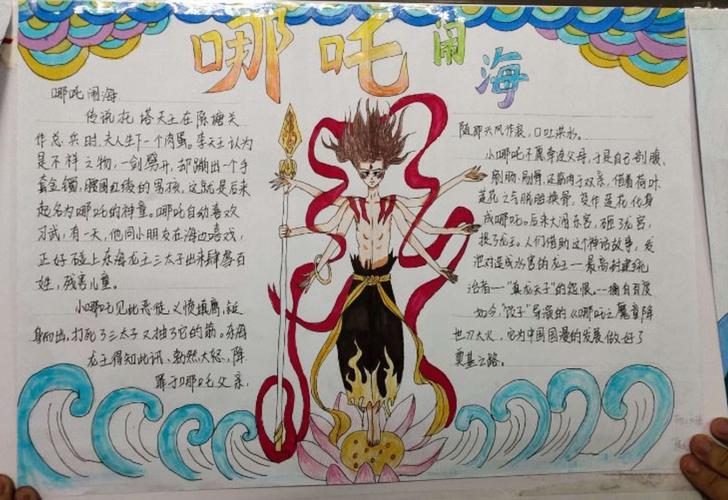 哪吒闹海
哪吒闹海
传说托塔天王在陈塘关
作总兵时,夫人生下一个肉蛋。李天王认为
是不祥之物,一剑劈开,却蹦出个手
套金镯,腰围红绫的男孩,这就是后来
起名为哪吒的神童。哪吒自幼喜欢
习武,有一天,他同小朋友在海边嬉戏,
正好碰上东海龙王三太子出来肆虐百
姓,残害儿童。
小哪吒见此恶徒,义愤填膺,挺
身而出,打死了三太子又抽了它的筋。东海
龙王得知此讯,勃然大怒,降
罪于哪吒父亲,
随即兴风作浪,口吐洪水。
小哪吒不愿牵连父母,于是自己剖腹、
剜肠、剔骨,还筋肉于双亲,借着荷叶
莲花之气脱胎换骨,变作莲花化身
成哪吒。后来大闹东宫,砸了龙宫,
捉了龙王。人们借助这个神话故事,发
泄对造成水害的龙王—最高封建统
治者—“真龙天子”的怨恨。
如今,“饺子”导演的《哪吒之魔童降
世》大火,它为中国国漫的发展做好了
奠基之路。